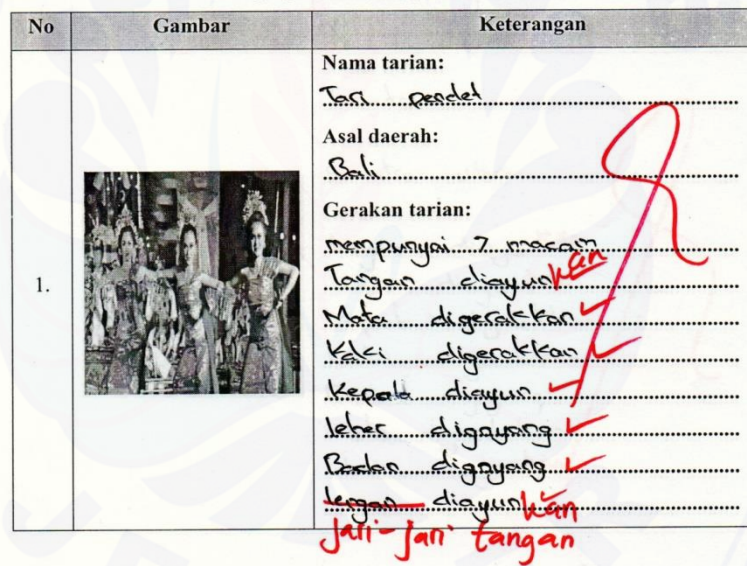 No Gambar Keterangan
1.
Nama tarian:
Tari pendet
Asal daerah:
Bali
Gerakan tarian:
mempunyai 7 macam
Tangan diayunkan
Mata digerakkan
Kaki digerakkan
Kepala diayun
leher digoyang
Badan digoyang
lengan diayunkan
jari-jari tangan